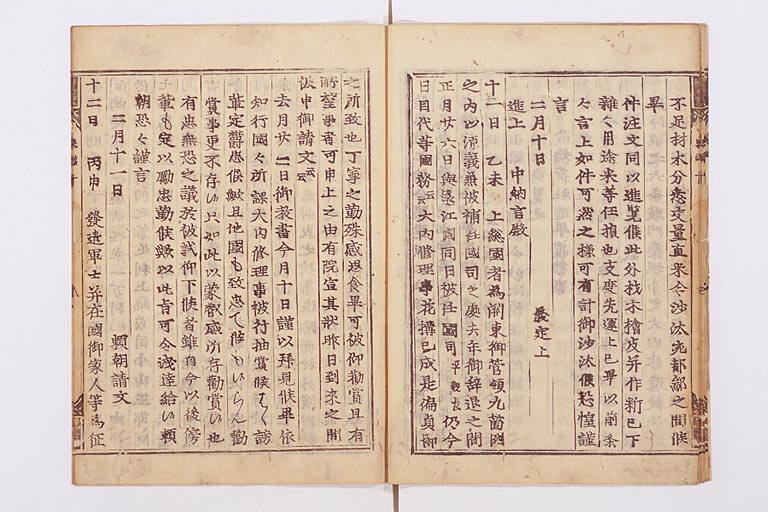 不足材木分悉交量直米令沙汰充部鄙之間候
畢
件注文同以進覧候此外找木檜皮并作新已下
雜々用途米等任損也支度先運上已畢以前条
々言上如件可然之様可有計御沙汰候恐惶謹
言
二月十日 義定上
進上 中納言殿
十一日 乙未 上総國者為関東御管領九箇國
之内也須義兼被補任國司之處去年御辞退之間
正月廿六日與遠江國同日被任國司平親長仍今
日目代等國務云々大内修理事花搆已成是偏貞御
之所致也丁寧之勤殊感返食畢可被仰勧賞且有
所望事者可申上之由有院宣其狀昨日到來之間
被申御請文云云
去月廿二日御教書今月十日謹以拝見候畢依
知行國々所課大内修理事被行抽賞候へく
某定爵忩候歟且他國も致忠て候もいらん勸
賞事更不存い只如此以蒙歡感所存勸賞い也
有忠無忠之議ヲ被試仰下候者雖自今以後傍
輩も定以励忠勤候歟以此旨可令洩達給い頼
朝恐々謹言
二月十一日 頼朝請文
十二日 丙申 發遣軍士并在國御家人等為征